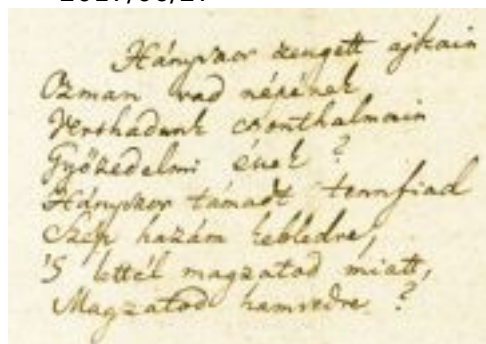 Hányszor zengett ajkain
Ozman vad népének
Verthadunk csonthalmain
Győzedelmi ének?
Hányszor támadt tennfiad
Szép hazám kebledre,
'S lettél magzatod miatt,
Magzatod hamvedre?